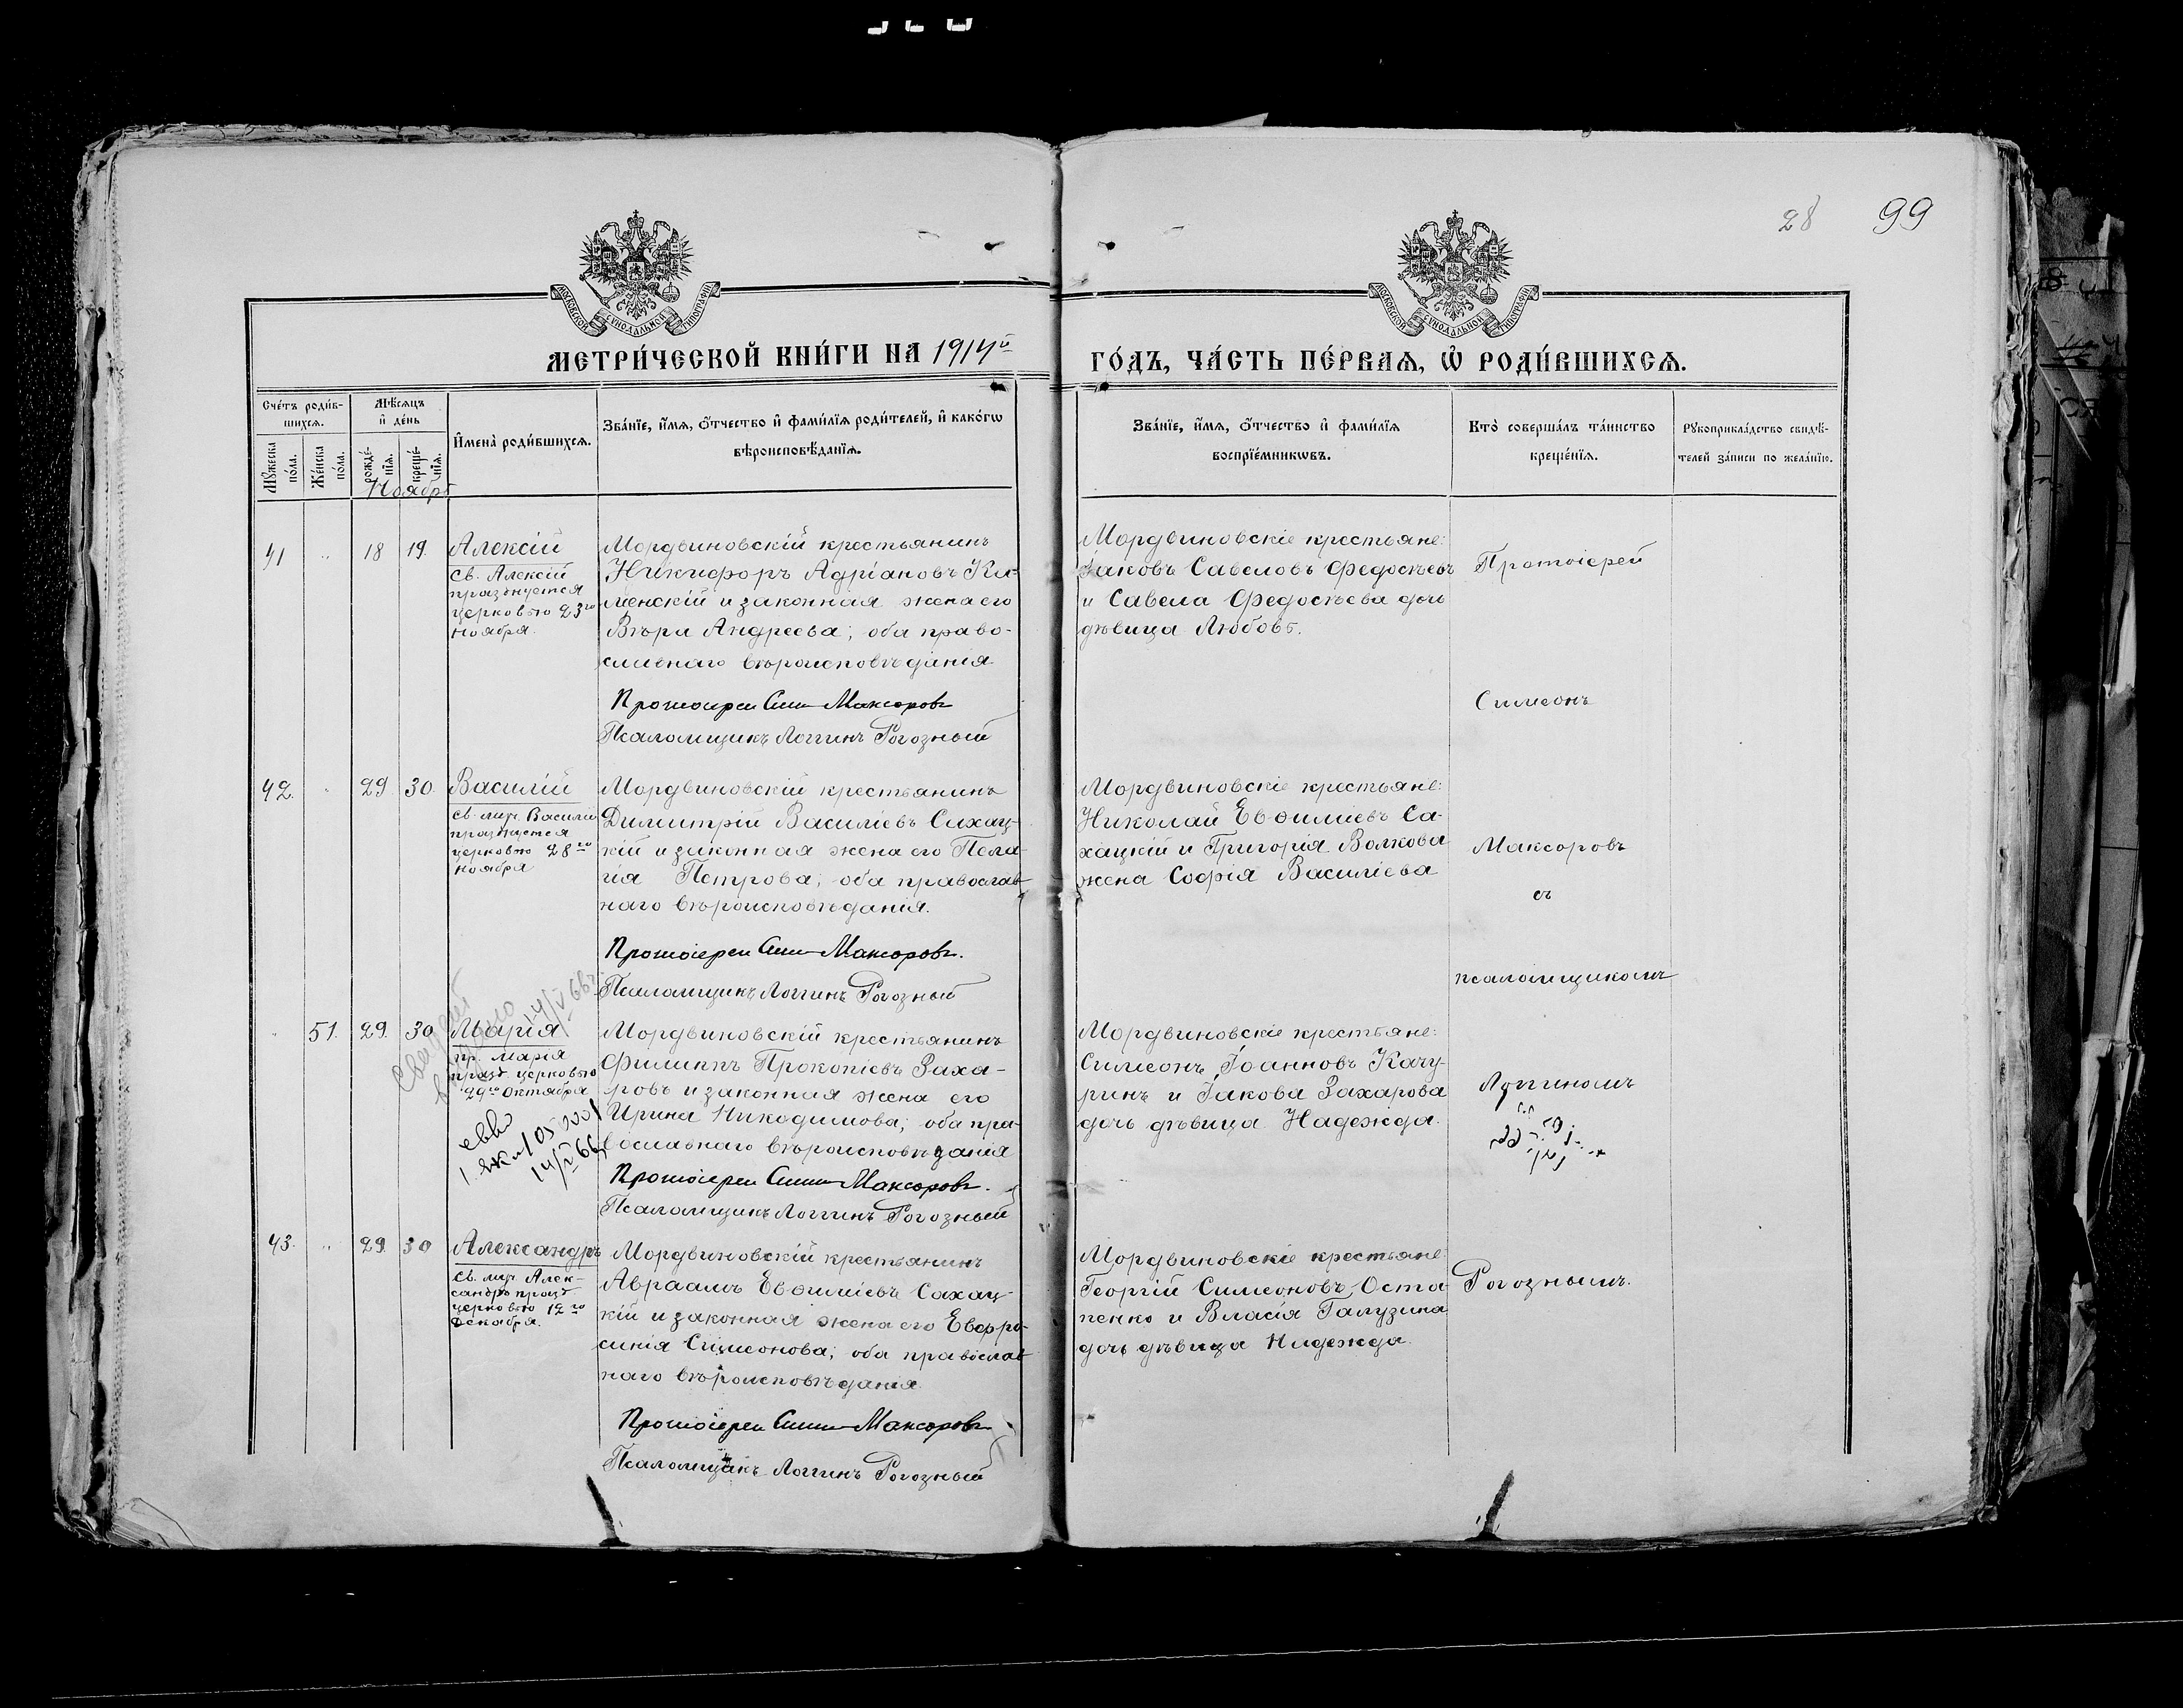 28 99
МОСКОВСКОЙ СѴНОДАЛЬНОЙ ТИПОГРАФІИ
МОСКОВСКОЙ СѴНОДАЛЬНОЙ ТИПОГРАФІИ
МЕТРИ́ЧЕСКОЙ КНИ́ГИ НА 1914й ГО́ДЪ, ЧА́СТЬ ПЕ́РВАѦ, Ѽ РОДИ́ВШИХСѦ.
Сче́тъ роди́в-
шихсѧ.
Мꙋ́жеска по́ла.
Же́нска по́ла.
Мѣ́сѧцъ
и҆ де́нь
рожде́-
нїѧ.
креще́-
нїѧ.
И҆мена̀ роди́вшихсѧ.
Зва́нїе, и҆́мѧ, о҆́тчество и҆ фами́лїѧ роди́телей, и҆ како́гѡ
вѣроисповѣ́данїѧ.
Зва́нїе, и҆́мѧ, о҆́тчество и҆ фами́лїѧ
воспрїе́мникѡвъ.
Кто̀ соверша́лъ та́инство
креще́нїѧ.
Рꙋкоприкла́дство свидѣ́-
телей за́писи по жела́нїю.
Ноябрь
41 " 18 19. Алексій
св. Алексій
празднуется
церковью 23го
ноября.
Мордвиновскій крестьянинъ
Никифоръ Адріановъ Кли-
менскій и законная жена его
Вѣра Андреева; оба право-
славнаго вѣроисповѣданія
Протоіерей Сим Максоровъ
Псаломщикъ Логгинъ Рогозный
Мордвиновскіе крестьяне:
Іаковъ Савеловъ Федосѣевъ
и Савела Федосѣева дочь
дѣвица Любовь.
Протоіерей
Симеонъ
42. " 29. 30. Василій
св. муч. Василій
празднуется
церковью 28го
ноября
Мордвиновскій крестьянинъ
Димитрій Василіевъ Сахац-
кій и законная жена его Пела-
гія Петрова; оба православ-
наго вѣроисповѣданія.
Протоіерей Сим Максоровъ.
Псаломщикъ Логгинъ Рогозный
Мордвиновскіе крестьяне:
Николай Евѳиміевъ Са-
хацкій и Григорія Волкова
жена Софія Василіева
Максоровъ
съ
псаломщикомъ
" 51. 29. 30. Марія
пр. Марія
празд. церковью
29го Октября
14/V 66
14/V 66
Мордвиновскій крестьянинъ
Филиппъ Прокопіевъ Заха-
ровъ и законная жена его
Ирина Никодимова; оба пра-
вославнаго вѣроисповѣданія
Протоіерей Сим Максоровъ.
Псаломщикъ Логгинъ Рогозный
Мордвиновскіе крестьяне:
Симеонъ Іоанновъ Качу-
ринъ и Іакова Захарова
дочь дѣвица Надежда.
Логгиномъ
43. " 29. 30 Александръ
св. муч. Алек-
сандръ празд.
церковью 12го
Декабря.
Мордвиновскій крестьянинъ
Авраамъ Евѳиміевъ Сахац-
кій и законная жена его Евфро-
синія Симеонова; оба православ-
наго вѣроисповѣданія.
Протоіерей Сим Максоровъ
Псаломщикъ Логгинъ Рогозный
Мордвиновскіе крестьяне:
Георгій Симеоновъ Оста-
пенко и Власія Галузина
дочь дѣвица Надежда.
Рогознымъ.